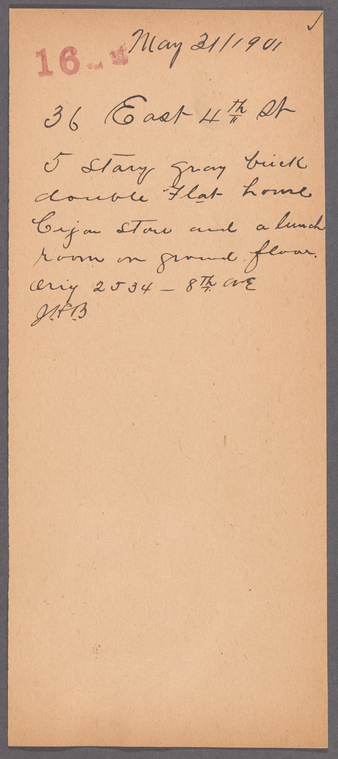 May 31/1901
16
36 East 4th St
5 story gray brick
double Flat house
Cigar store and a lunch
room on ground floor.
2534 - 8th Ave
J.H.B